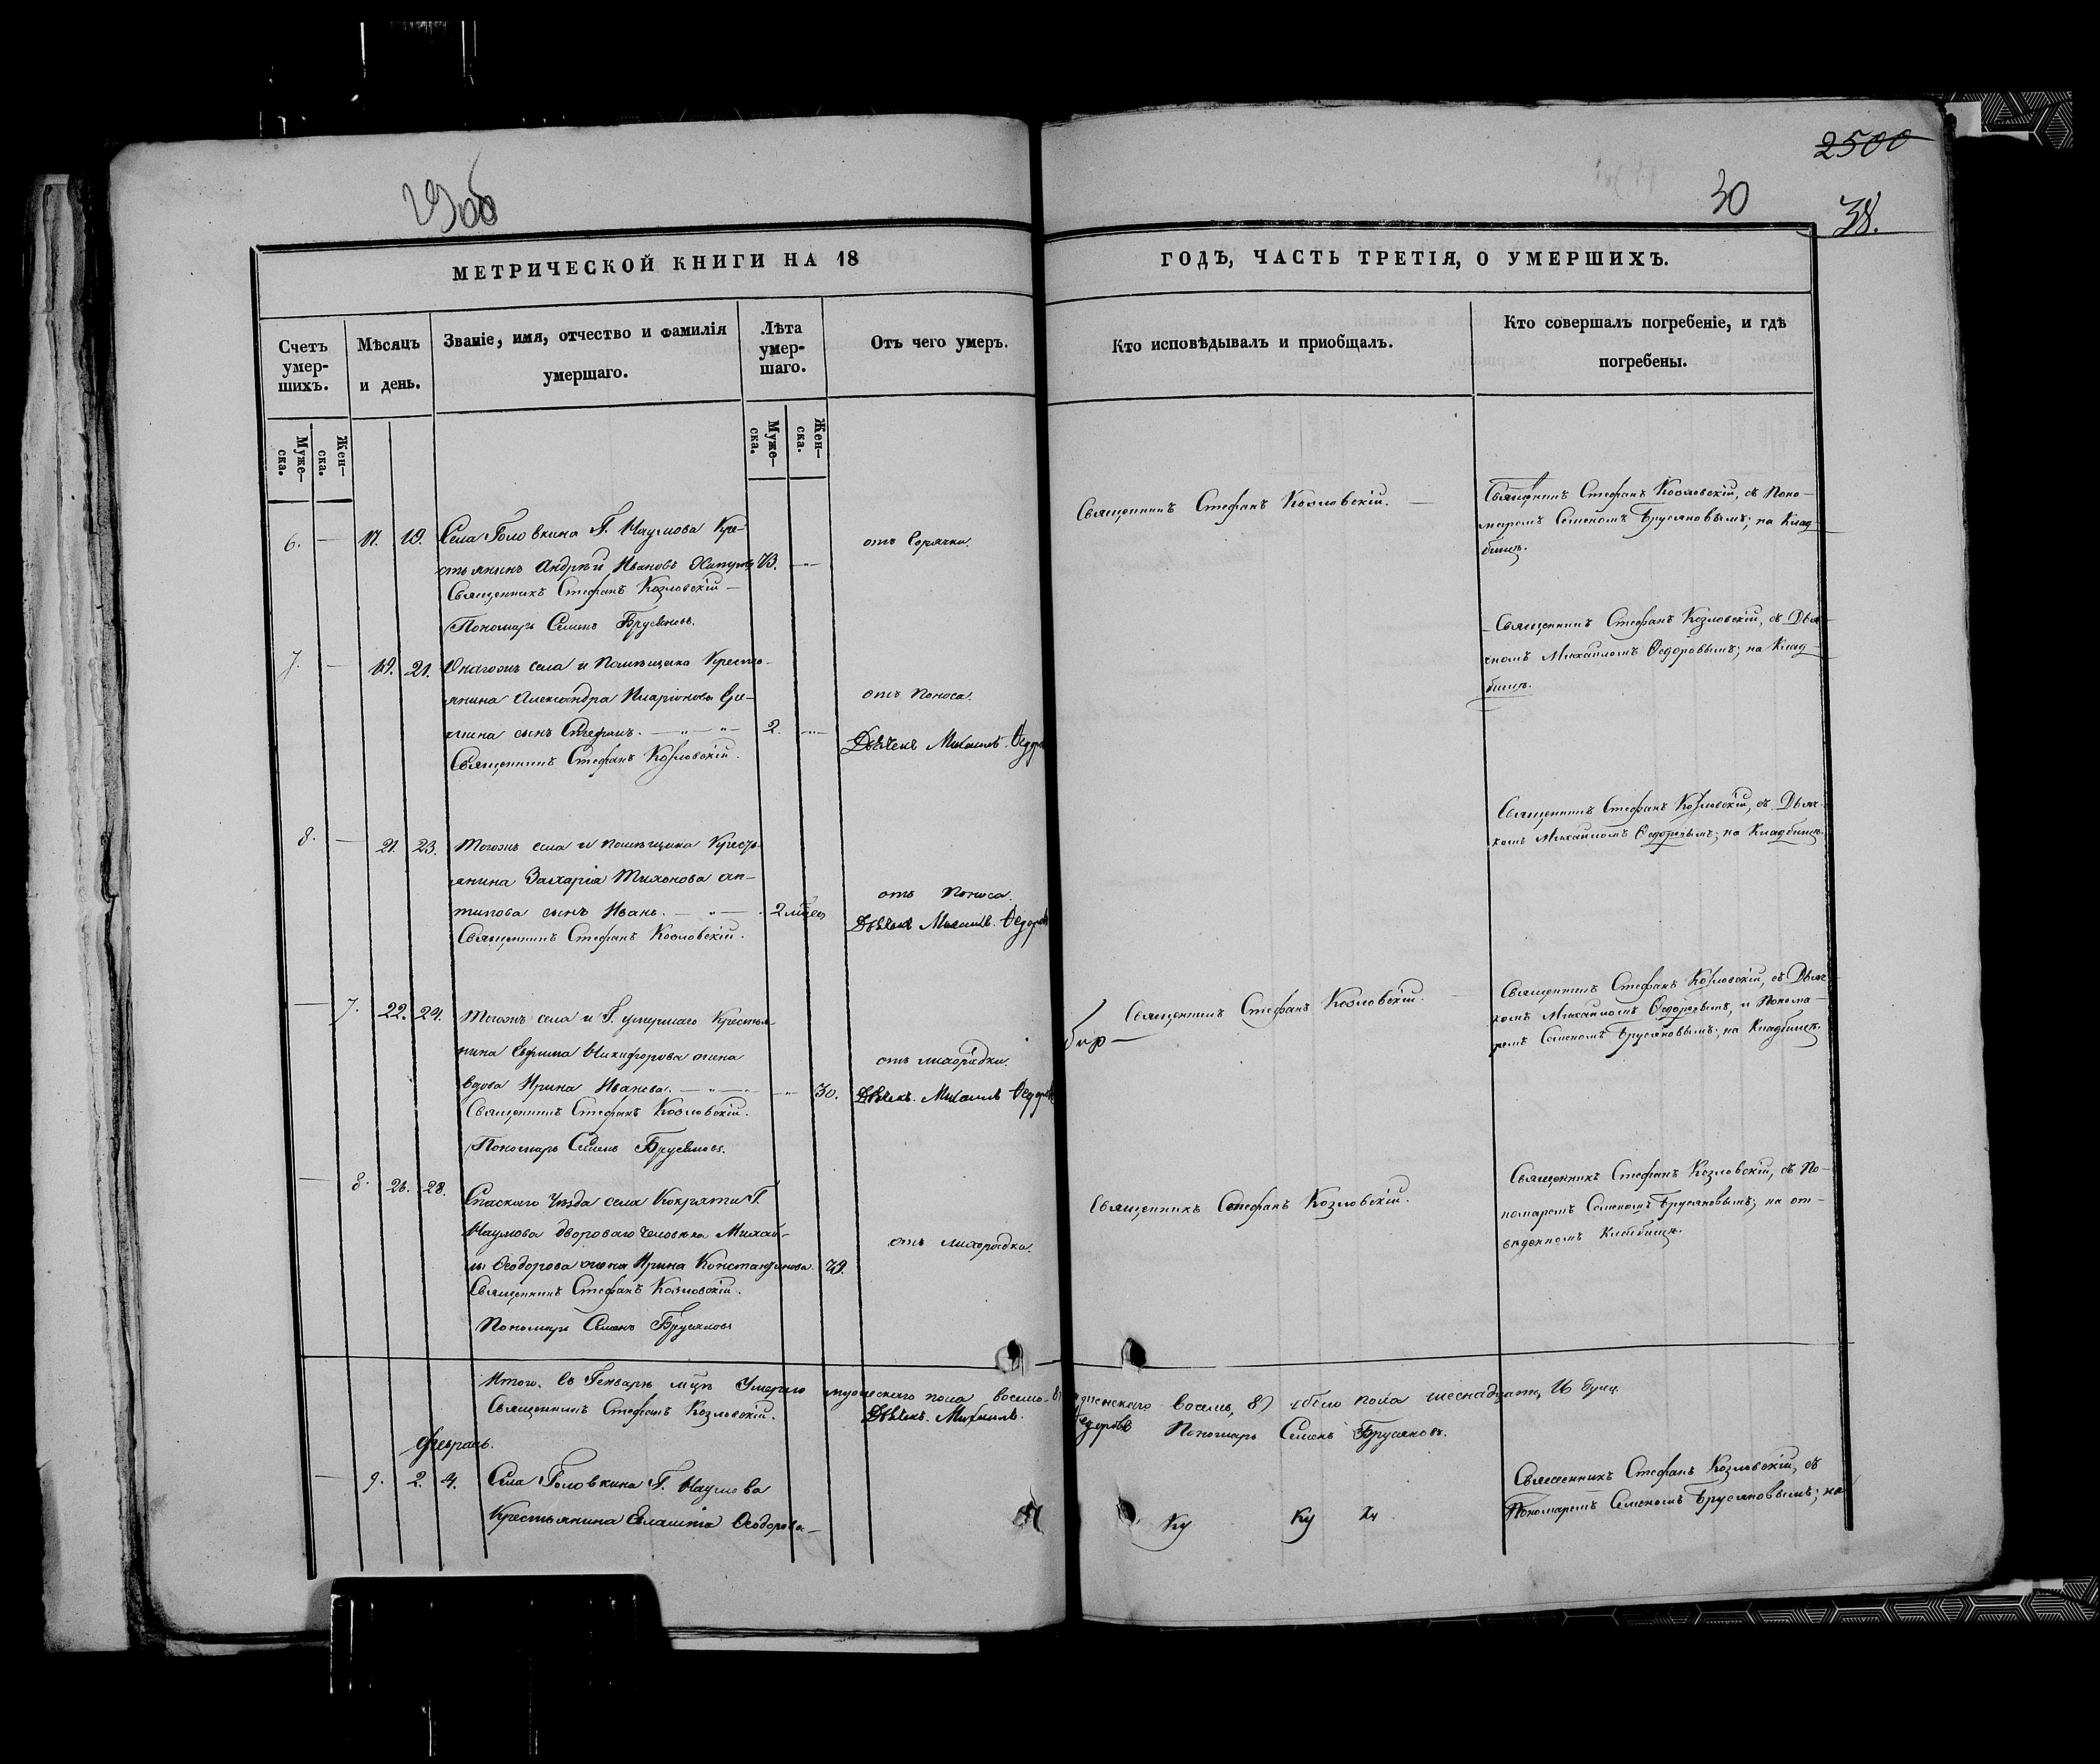 2500
29об
30
38.
МЕТРИЧЕСКОЙ КНИГИ НА 18
ГОДЪ, ЧАСТЬ ТРЕТІЯ, О УМЕРШИХЪ.
Счетъ умер-шихъ.
Мѣсяцъ и день.
Званіе, имя, отчество и фамилія умершаго.
Лѣта умер-шаго.
Отъ чего умеръ.
Кто исповѣдывалъ и пріобщалъ.
Кто совершалъ погребеніе, и гдѣ погребены.
Муже-ска.
Жен-ска.
Муже-ска.
Жен-ска.
6. — 17. 19. Села Головкина Г. Наумова Кре-
стьянинъ Андрей Ивановъ 73.
отъ Горячки.
Священникъ Стефанъ Козловскій
Пономарь Семенъ Брусяновъ.
Священникъ Стефанъ Козловскій. —
Священникъ Стефанъ Козловскій, съ Поно-
маремъ Семеномъ Брусяновымъ; на Клад-
бищѣ.
7. — 19. 21. Онагожъ села и помѣщика Кресть-
янина Александра Иларіонова
сынъ Стефанъ. 2.
отъ Поноса.
Священникъ Стефанъ Козловскій.
Дьячекъ Михаилъ Федоровъ
Священникъ Стефанъ Козловскій, съ Дья-
чкомъ Михаиломъ Ѳедоровымъ; на Клад-
бищѣ.
8. — 21. 23. Тогожъ села и помѣщика Кресть-
янина Захарія Тихонова Ан-
типова сынъ Иванъ. 2 мѣсец
отъ Поноса.
Священникъ Стефанъ Козловскій.
Дьячекъ Михаилъ Ѳедоровъ
Священникъ Стефанъ Козловскій, съ Дьяч-
комъ Михаиломъ Ѳедоровымъ; на Кладбищѣ.
— 7. 22. 24. Тогожъ села и Г. умершаго Крестья-
нина Ефима Никифорова жена
вдова Ирина Иванова. 30.
отъ лихорадки.
Священникъ Стефанъ Козловскій.
Дьячекъ Михаилъ Ѳедоровъ
Пономарь Семенъ Брусяновъ.
Священникъ Стефанъ Козловскій.
Священникъ Стефанъ Козловскій, съ Дьяч-
комъ Михаиломъ Ѳедоровымъ, и Понома-
ремъ Семеномъ Брусяновымъ; на Кладбищѣ.
— 8. 26. 28. Спаскаго Уѣзда села Кокряти Г.
Наумова двороваго человѣка Михай-
лы Ѳеодорова жена Ирина Константинова. 70.
отъ лихорадки.
Священникъ Стефанъ Козловскій.
Пономарь Семенъ Брусяновъ
Священникъ Стефанъ Козловскій.
Священникъ Стефанъ Козловскій, съ По-
номаремъ Семеномъ Брусяновымъ; на от-
веденномъ Кладбищѣ.
Итого. Въ Генварѣ мцѣ Умерло мужескаго пола восемь 8, женскаго восемь, 8, обоего пола шеснадцать, 16 душъ.
Священникъ Стефанъ Козловскій. Дьячекъ Михаилъ Ѳедоровъ Пономарь Семенъ Брусяновъ.
Февраль.
— 9. 2. 4. Села Головкина Г. Наумова
Крестьянина Евлампія Ѳеодорова
Священникъ Стефанъ Козловскій, съ
Пономаремъ Семеномъ Брусяновымъ; на